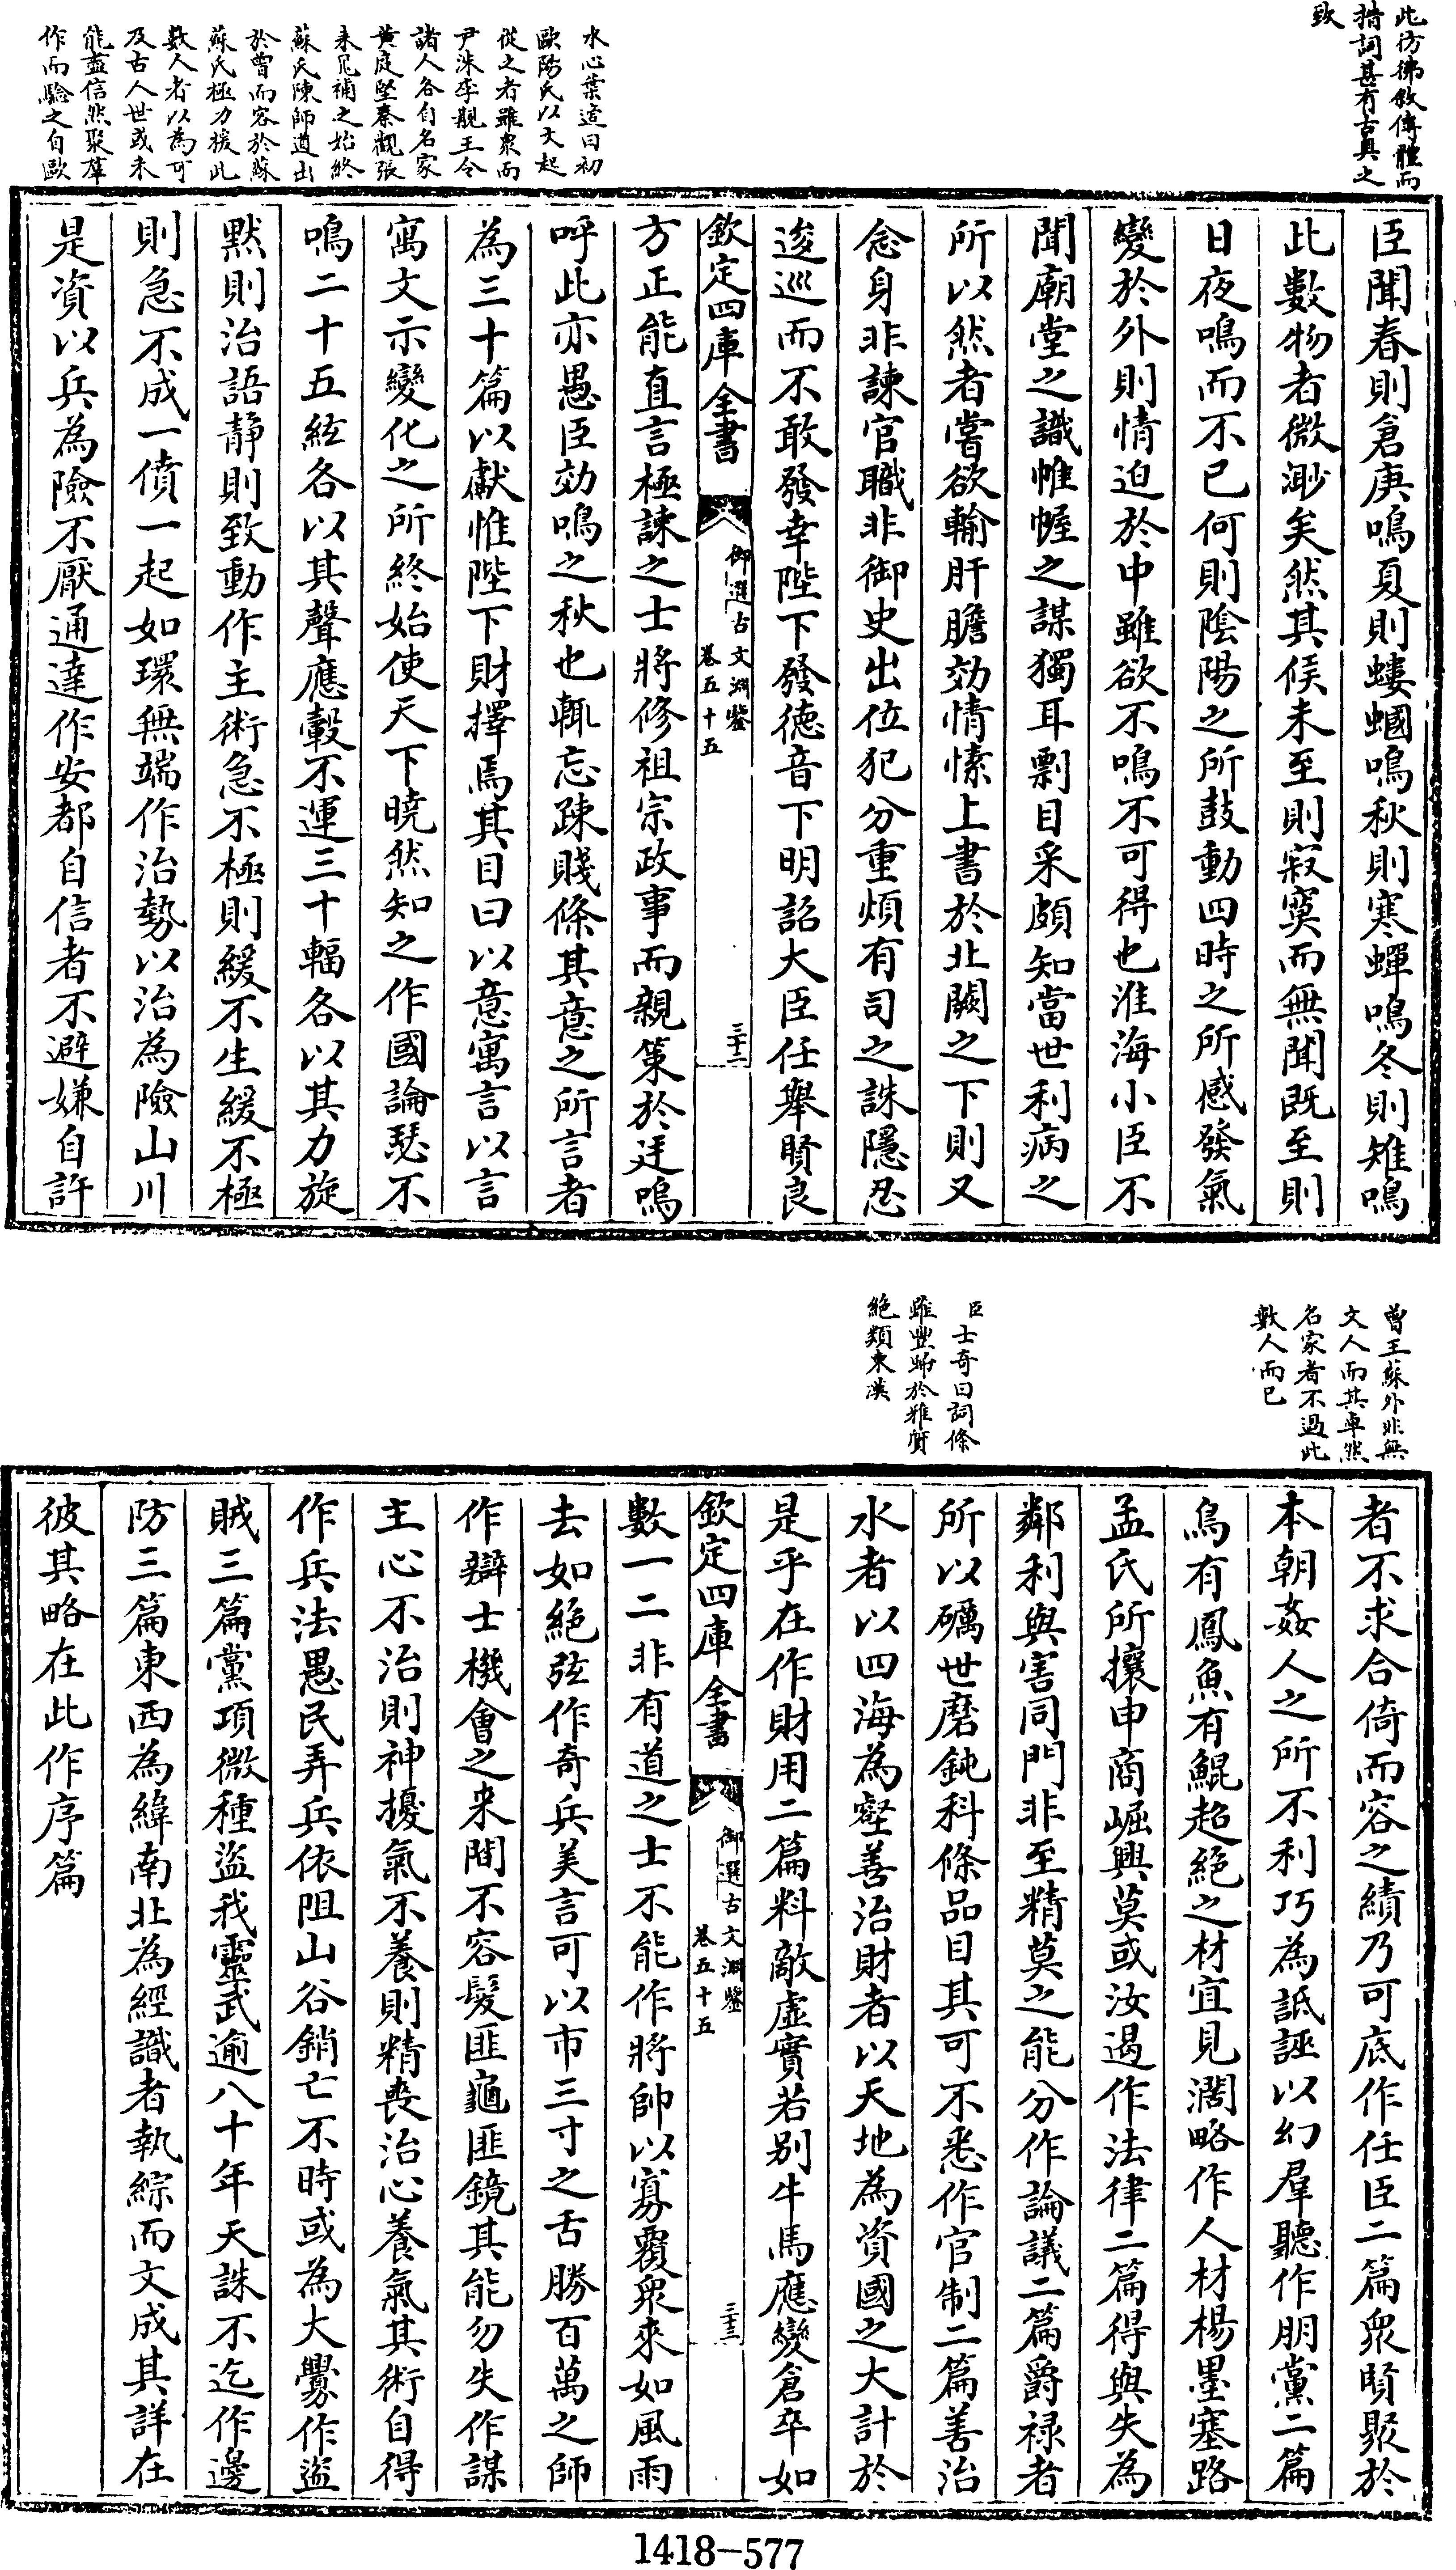 此彷彿敘傳體而
措詞甚有古奥之
致
水心葉適曰初
歐陽氏以文起
從之者雖衆而
尹洙李覯王令
諸人各自名家
黄庭堅秦觀張
耒晁補之始終
蘇氏陳師道出
於曾而容於蘇
蘇氏極力援此
數人者以為可
及古人世或未
能盡信然聚羣
作而驗之自歐
臣聞春則倉庚鳴夏則螻蟈鳴秋則寒蟬鳴冬則雉鳴
此數物者微渺矣然其候未至則寂寞而無聞既至則
日夜鳴而不已何則陰陽之所鼓動四時之所感發氣
變於外則情迫於中雖欲不鳴不可得也淮海小臣不
聞廟堂之議帷幄之謀獨耳剽目采頗知當世利病之
所以然者嘗欲輸肝膽効情愫上書於北闕之下則又
念身非諫官職非御史出位犯分重煩有司之誅隱忍
逡巡而不敢發幸陛下發徳音下明詔大臣任舉賢良
欽定四庫全書
御選古文淵鑒
卷五十五
三十二
方正能直言極諫之士將修祖宗政事而親策於廷嗚
呼此亦愚臣効鳴之秋也輒忘疎賤條其意之所言者
為三十篇以獻惟陛下財擇焉其目曰以意寓言以言
寓文示變化之所終始使天下曉然知之作國論瑟不
鳴二十五絃各以其聲應轂不運三十輻各以其力旋
默則治語静則致動作主術急不極則緩不生緩不極
則急不成一僨一起如環無端作治勢以治為險山川
是資以兵為險不厭通達作安都自信者不避嫌自許
曾王蘇外非無
文人而其卓然
名家者不過此
數人而已
臣士奇曰詞條
雖豐歸於雅贍
絶類東漢
者不求合倚而容之績乃可底作任臣二篇衆賢聚於
本朝姦人之所不利巧為詆誣以幻羣聽作朋黨二篇
鳥有鳳魚有鯤超絶之材宜見濶略作人材楊墨塞路
孟氏所攘申商崛興莫或汝遏作法律二篇得與失為
鄰利與害同門非至精莫之能分作論議二篇爵禄者
所以礪世磨鈍科條品目其可不悉作官制二篇善治
水者以四海為壑善治財者以天地為資國之大計於
是乎在作財用二篇料敵虛實若别牛馬應變倉卒如
欽定四庫全書
御選古文淵鑒
卷五十五
三十三
數一二非有道之士不能作將帥以寡覆衆來如風雨
去如絶弦作奇兵美言可以市三寸之舌勝百萬之師
作辯士機會之来間不容髮匪龜匪鏡其能勿失作謀
主心不治則神擾氣不養則精喪治心養氣其術自得
作兵法愚民弄兵依阻山谷銷亡不時或為大釁作盗
賊三篇黨項微種盜我靈武逾八十年天誅不迄作邊
防三篇東西為緯南北為經識者執綜而文成其詳在
彼其略在此作序篇
1418-577